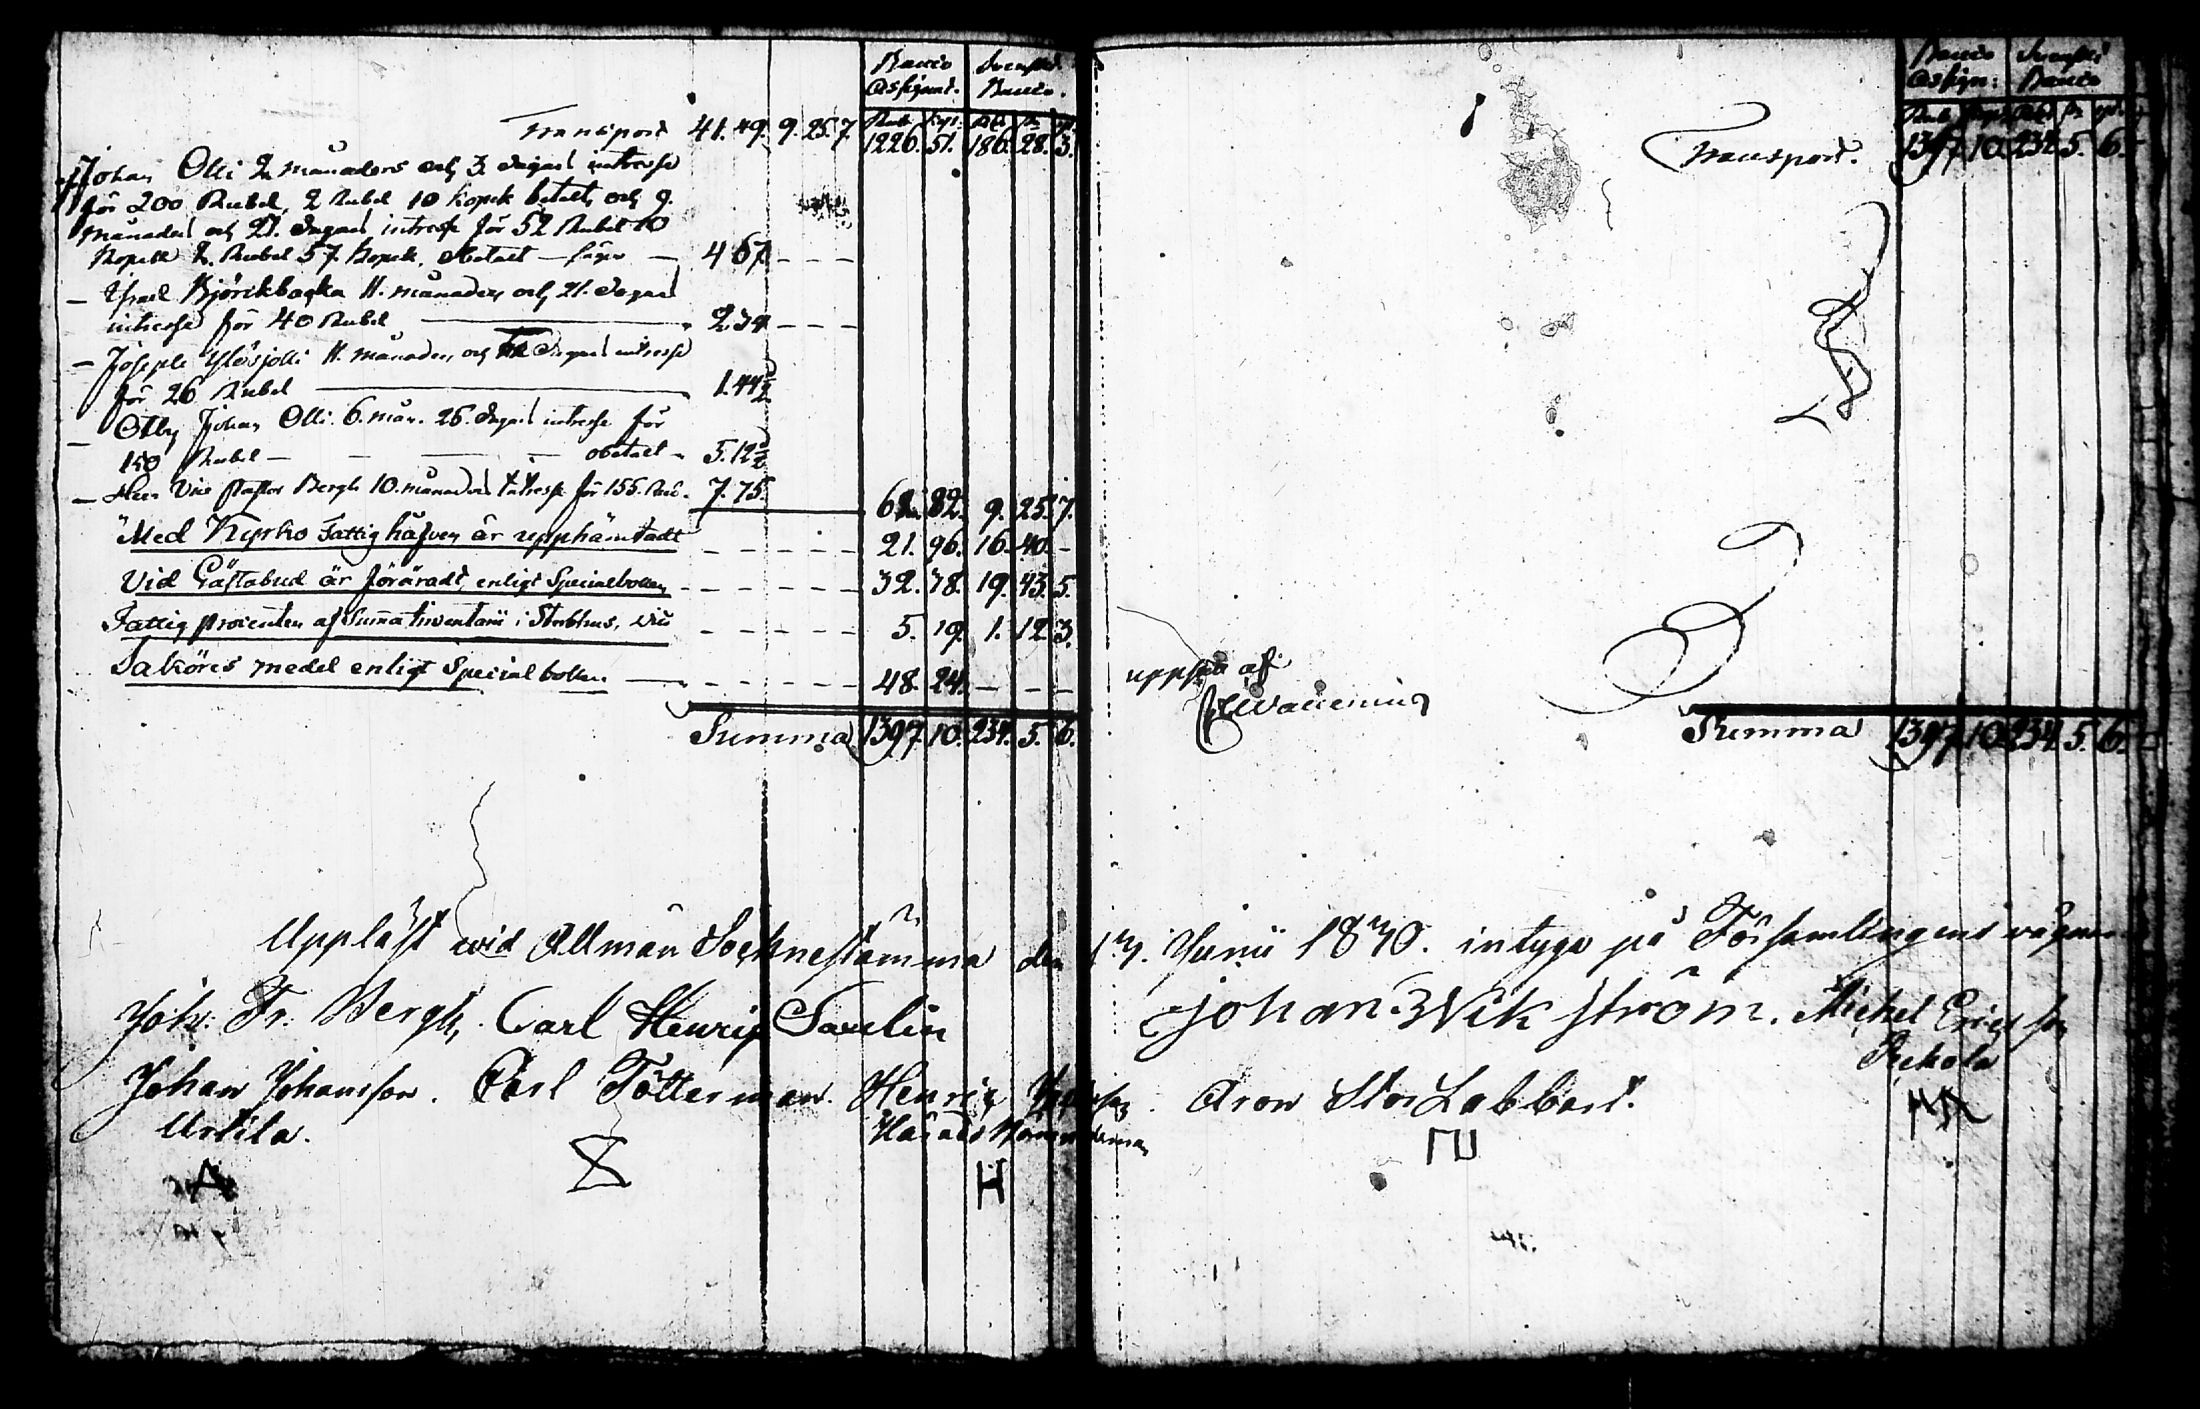 Banco Svenskt
Assignat. Banco.
Rub. Kop. Rd. sk. r.
Transport 41.49. 9.25.7. 1226. 51. 186. 28. 3.
Johan Olli 2 månaders och 3 dagars intresse
för 200 Rubel, 2 Rubel 10 Kopek betalt, och 9.
månader och 27. dagars intresse för 52 Rubel 10
Kopek 2. Rubel 57 Kopek, obetalt — — 4 67 - - -
— Israel Björckbacka 11. månader och 21. dagars
intresse för 40 Rubel — 2.34 - - -
— Joseph Ylösjolli 11. månader och dagars intresse
för 26 Rubel — 1.44½
— Olly Johan Olli 6. mån. 26. dagars intresse för
150 Rubel — — — obetalt - 5.12½
— Herr Vice Pastor Bergh 10. månaders intresse för 155. Rub. 7.75. 62. 82. 9. 25. 7.
Med Kyrko Fattighåfven är upphämtadt - - - - - 21. 96. 16. 40. -
Vid Gästabud är föräradt, enligt Specialboken - - - - - 32. 38. 19. 43. 5.
Fattig procenten af Inventarii i Sterbhus, - - - - - 5. 19. 1. 12. 3.
Saköres medel enligt Special boken — - - - - - 48. 24. - - -
Summa 1397. 10. 234. 5. 6.
Upläst wid Allmän Sockne stämma den
Joh: Fr: Bergh. Carl Henric Savelin
Johan Johansson. Carl Totterman. Henric
Urtila. Härads
H
Banco Svenskt
Assign: Banco
Transport. 1397 10. 234 5. 6.
af
Summa 1397 10. 234 5. 6.
13. Junii 1830. intyga på Församlingens vägnar
Johan Wikström. Michel Ericsson
Aron Stor Labbart.